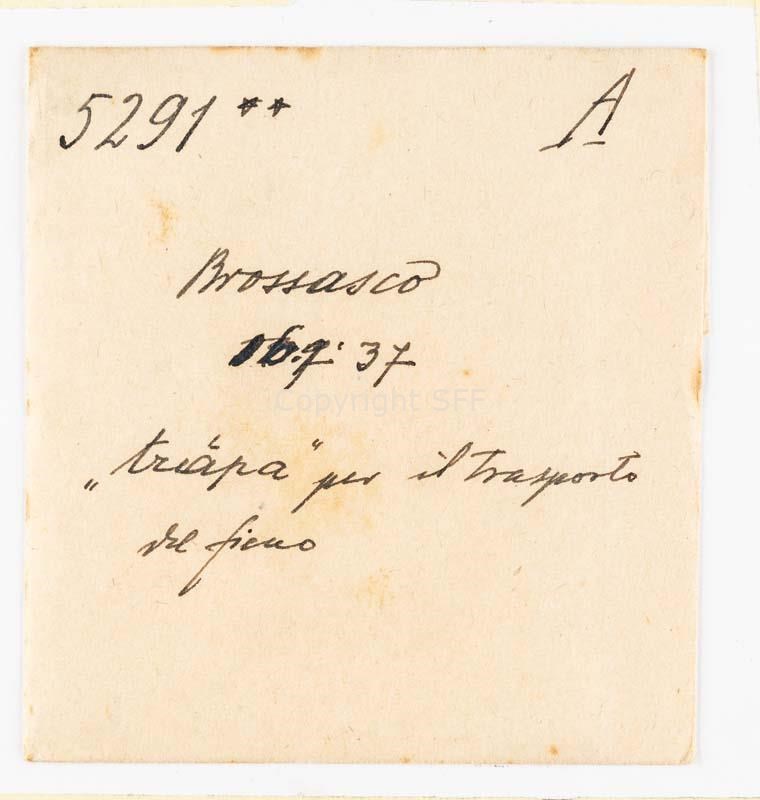 5291 ** A
Brossasco
16.9. 37
Copyright SFF
per il trasporto
del fieno